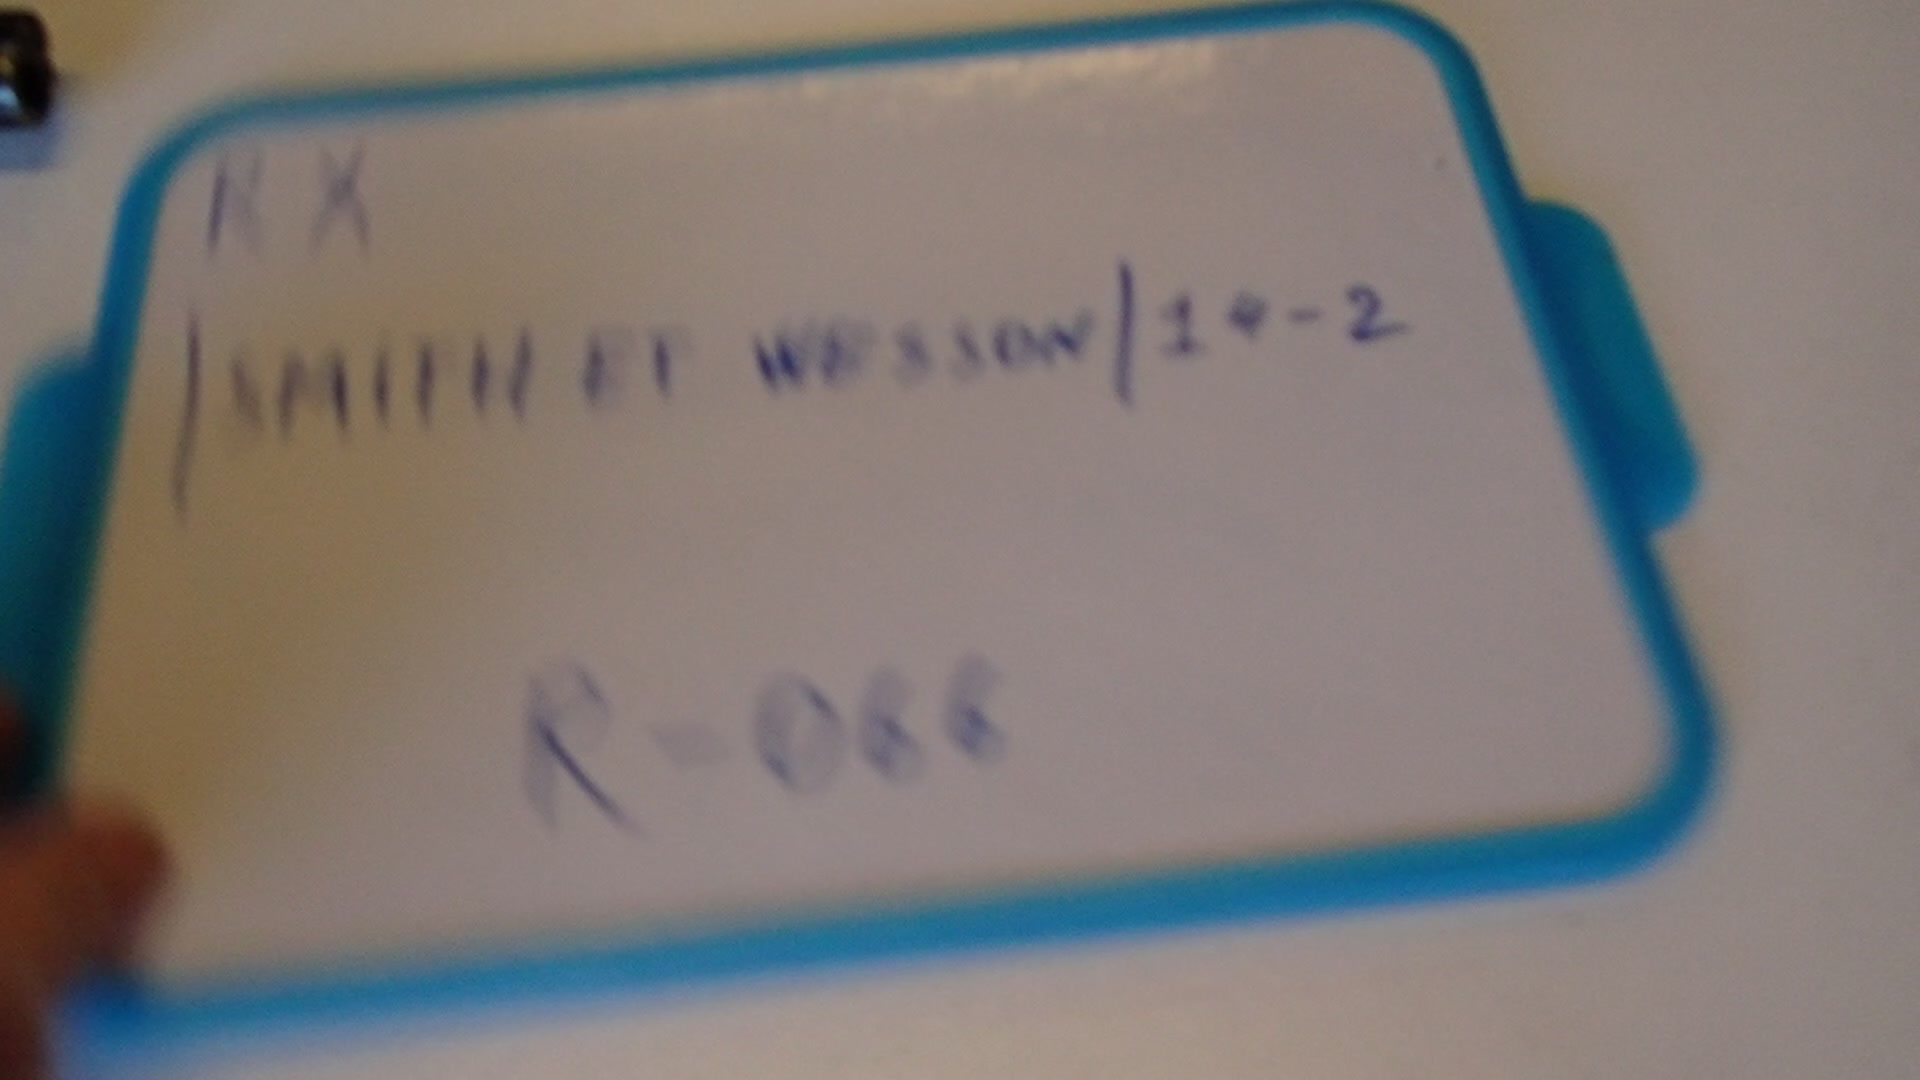 RX
/SMITH ET WESSON/14-2
R-066